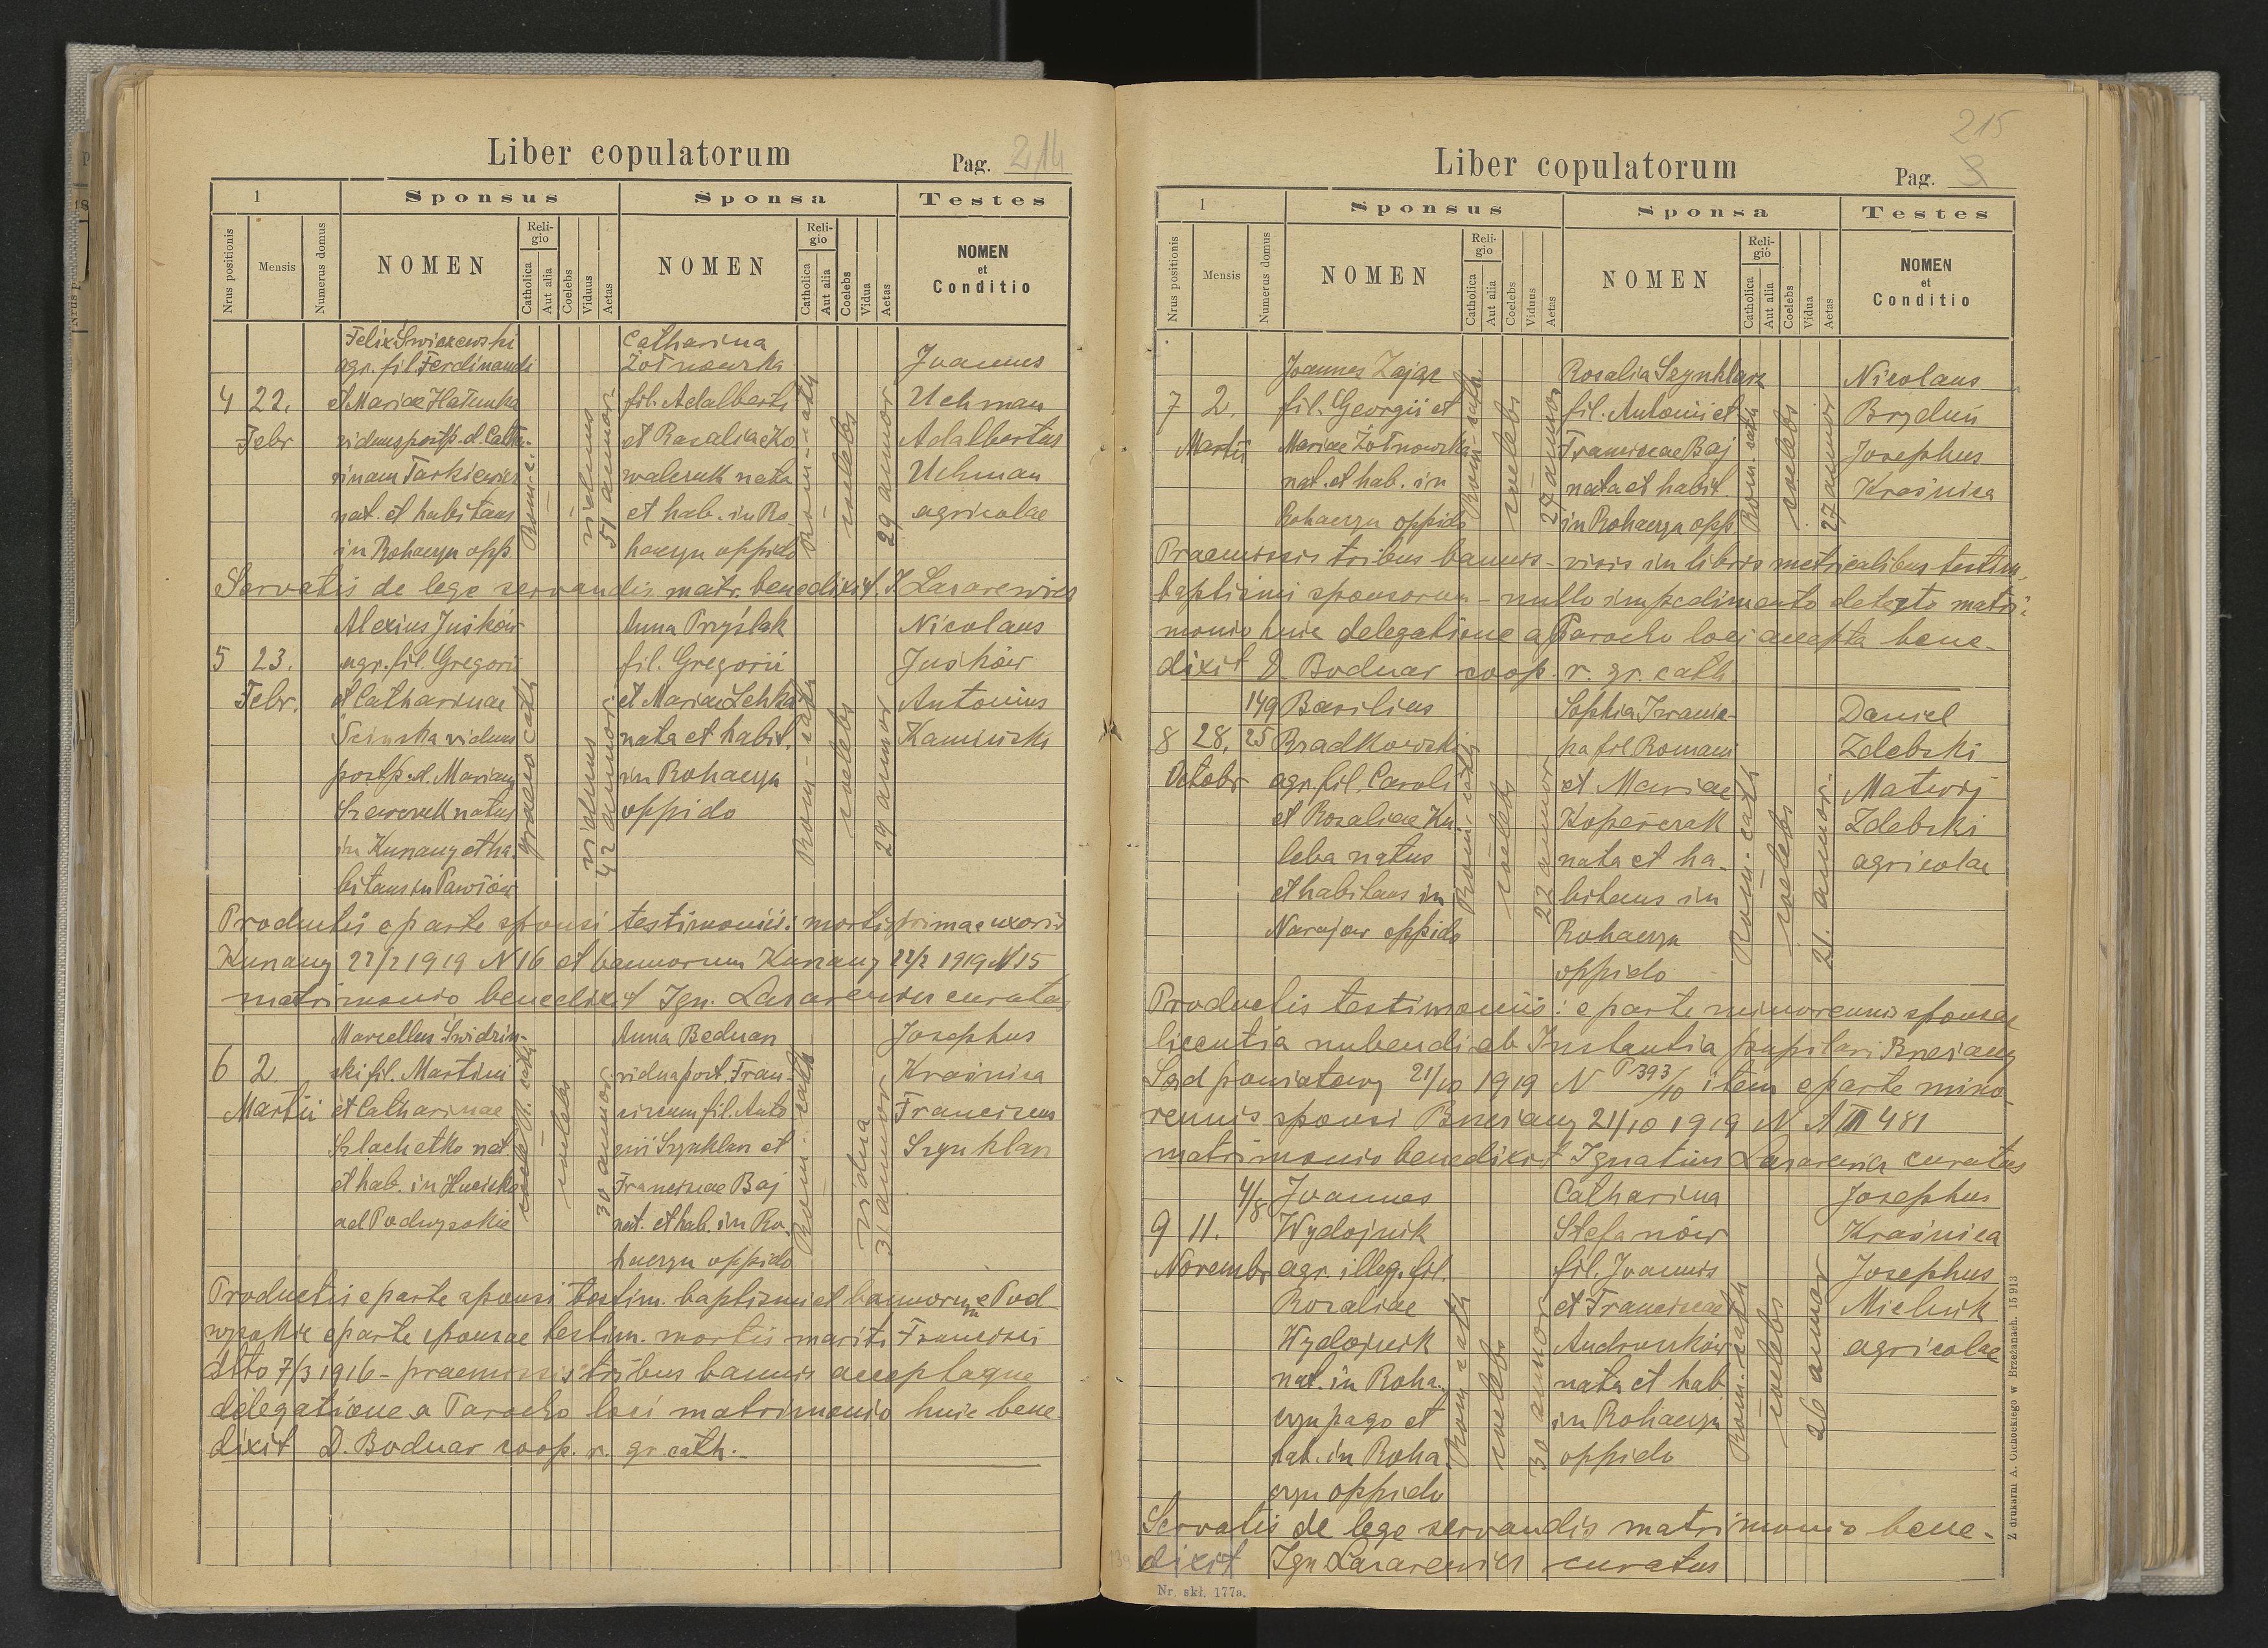 Liber copulatorum
Pag. 214
1
Sponsus
Sponsa
Testes
Nrus positionis
Mensis
Numerus domus
NOMEN
Religio
Catholica
Aut alia
Coelebs
Viduus
Aetas
NOMEN
Religio
Catholica
Aut alia
Coelebs
Vidua
Aetas
NOMEN
et
Conditio
4 22.
Febr
Felix Świezewski
agr. fil Ferdinandi
et Mariae Hałunka
viduus post p. d. Catha-
rinam Tarkiewicz
nat. et habitans
in Rohaczyn opp.
Rom. c.
viduus
51 annor.
Catharina
Żołnowska
fil. Adalberti
et Rosaliae Ko
walczuk nata
et hab. in Ro-
haczyn oppido
Rom-cath
coelebs
29 annor
Joannes
Uchman
Adalbertus
Uchman
agricolae
Servatis de lege servandis matr. benedixit. I. Lazarewicz
5 23.
Febr.
Alexius Juśków
agr. fil. Gregorii
et Catharinae
viduus
post p. d. Mariam
Szewczuk natus
in Kunaszy et ha-
bitans in Pawłów
graeco cath
viduus
42 annor.
Anna Przyślak
fil. Gregorii
et Mariae Lehka
nata et habit.
in Rohaczyn
oppido
Rom-cath
coelebs
29 annor
Nicolaus
Juśków
Antonius
Kaminski
Productis e parte sponsi testimoniis: mortis primae uxoris
Kunaszy 22/2 1919 N 16 et bannorum Kunaszy 22/2 1919 N 15
matrimonio benedixit Ign. Lazarewicz curatus
6 2.
Martii
Marcellus Świdzin-
ski fil. Martini
et Catharinae
Szlachetko nat.
et hab. in Hucisko
ad Podwysokie
coelebs
30 annor.
Anna Bednarz
vidua post. Fran-
ciscum fil. Anto
nii Szynklarz et
Franciscae Baj
nat. et hab. in Ro-
haczyn oppido
Rom. cath
vidua
31 annor
Josephus
Kraśnica
Franciscus
Szynklarz
Productis e parte sponsi testim. baptismi et bannorum e Pod-
wysokie e parte sponsae testim. mortis mariti Francisci
dtto 7/3 1916 - praemissis tribus bannis acceptaque
delegatione a Parocho loci matrimonio huic bene-
dixit D. Bodnar coop. r. gr. cath.
215
Liber copulatorum
Pag.
1
Sponsus
Sponsa
Testes
Nrus positionis
Mensis
Numerus domus
NOMEN
Religio
Catholica
Aut alia
Coelebs
Viduus
Aetas
NOMEN
Religio
Catholica
Aut alia
Coelebs
Vidua
Aetas
NOMEN
et
Conditio
7 2.
Martii
Joannes Zając
fil. Georgii et
Mariae Żołnowska
nat. et hab. in
Rohaczyn oppido
Rom-cath.
coelebs
27 annor
Rosalia Szynklarz
fil. Antonii et
Franciscae Baj
nata et habit.
in Rohaczyn opp.
Rom. cath
coelebs
27 annor
Nicolaus
Bryduń
Josephus
Kraśnica
Praemissis tribus bannis - visis in libris metricalibus testim.
baptismi sponsorum - nullo impedimento detecto matri-
monio huic delegatione a Parocho loci accepta bene-
dixit D. Bodnar coop. r. gr. cath.
8 28.
Octobr
149
25
Basilius
Bradkowski
agr. fil. Caroli
et Rosaliae Ku-
leba natus
et habitans in
Narajow oppido
Rom. cath
coelebs
22 annor
Sophia Iwanic-
ka fil Romani
et Mariae
Koperczak
nata et ha-
bitans in
Rohaczyn
oppido
Rom-cath
coelebs
21. annor.
Daniel
Zdebski
Matwij
Zdebski
agricolae
Productis testimoniis: e parte minorennis sponsae
licentia nubendi ab Instantia pupilari Brzeżany
Sąd powiatowy 21/10 1919 N P 393/10 item e parte mino-
rennis sponsi Brzeżany 21/10 1919 N A III 481
matrimonio benedixit Ignatius Lazarewicz curatus
9 11.
Novembr
4/8
Joannes
Wydojnik
agr. illeg. fil.
Rozaliae
Wydojnik
nat. in Roha-
czyn pago et
hab. in Roha
czyn oppido
Rom cath
coelebs
30 annor
Catharina
Stefanów
fil. Joannis
et Franciscae
Andruszków
nata et hab.
in Rohaczyn
oppido
Rom-cath
coelebs
26 annor
Josephus
Kraśnica
Josephus
Mielnik
agricolae
Servatis de lege servandis matrimonio bene-
dixit Ign Lazarewicz curatus
Nr. skł. 177a.
Z drukarni A. Olchockiego w Brzeżanach. 15 913